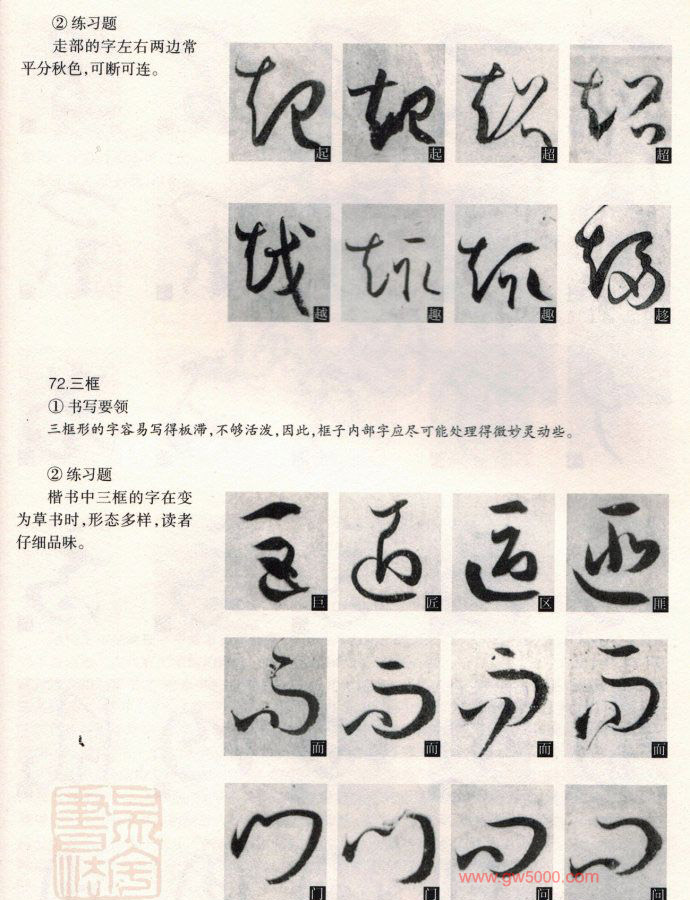 ② 练习题
走部的字左右两边常
平分秋色,可断可连。
起 起 超 超
越 趣 趣 趍
72.三框
① 书写要领
三框形的字容易写得板滞,不够活泼,因此,框子内部字应尽可能处理得微妙灵动些。
② 练习题
楷书中三框的字在变
为草书时,形态多样,读者
仔细品味。
巨 匠 区 匪
而 而 而 而
门 门 问 问
www.gw5000.com